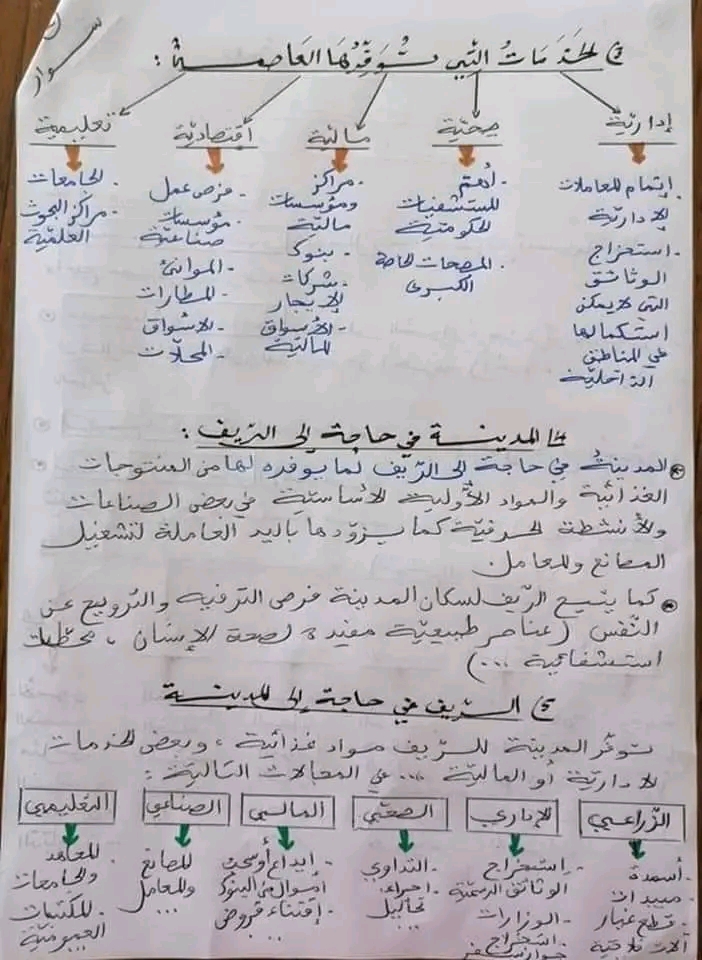 سوار
3) الخَدَمَاتُ الّتِي تُوَفِّرُهَا العَاصِمَةُ :
إداريّة
صحيّة
ماليّة
اقتصاديّة
تعليمية
إتمام المعاملات
الإداريّة
- استخراج
الوثائق
التي لا يمكن
استكمالها
في المناطق
الداخليّة
- أهم
المستشفيات
الحكوميّة
- المصحات الخاصة
الكبرى
- مراكز
ومؤسسات
ماليّة
- بنوك
- شركات
الإيجار
- الأسواق
الماليّة
- فرص عمل
- مؤسسات
صناعيّة
- الموانئ
- المطارات
- الأسواق
- المحلّات
- الجامعات
- مراكز البحوث
العلميّة
4) المدينة في حاجة إلى الرّيف :
المدينة في حاجة إلى الرّيف لما يوفره لها من المنتوجات
الغذائيّة والمواد الأوّليّة الأساسيّة في بعض الصناعات
والأنشطة الحرفيّة كما يزوّدها باليد العاملة لتشغيل
المصانع والمعامل.
كما يتيح الرّيف لسكان المدينة فرص الترفيه والترويح عن
النّفس (عناصر طبيعيّة مفيدة لصحة الإنسان، محطّات
استشفائية ...)
5) الرّيف في حاجة إلى المدينة
توفّر المدينة للرّيف مواد غذائيّة، وبعض الخدمات
الإداريّة أو الماليّة ... في المجالات التاليّة :
الزّراعي
الإداري
الصحّي
المالي
الصناعي
التعليمي
- أسمدة
- مبيدات
- قطع غيار
آلات فلاحية
- استخراج
الوثائق الرسميّة
- الوزارات
- استخراج
جواز سفر
- التداوي
- إجراء
تحاليل
- إيداع أو سحب
أموال من البنوك
- إقتناء قروض
...
المصانع
والمعامل
...
- المعاهد
والجامعات
- المكتبات
العموميّة